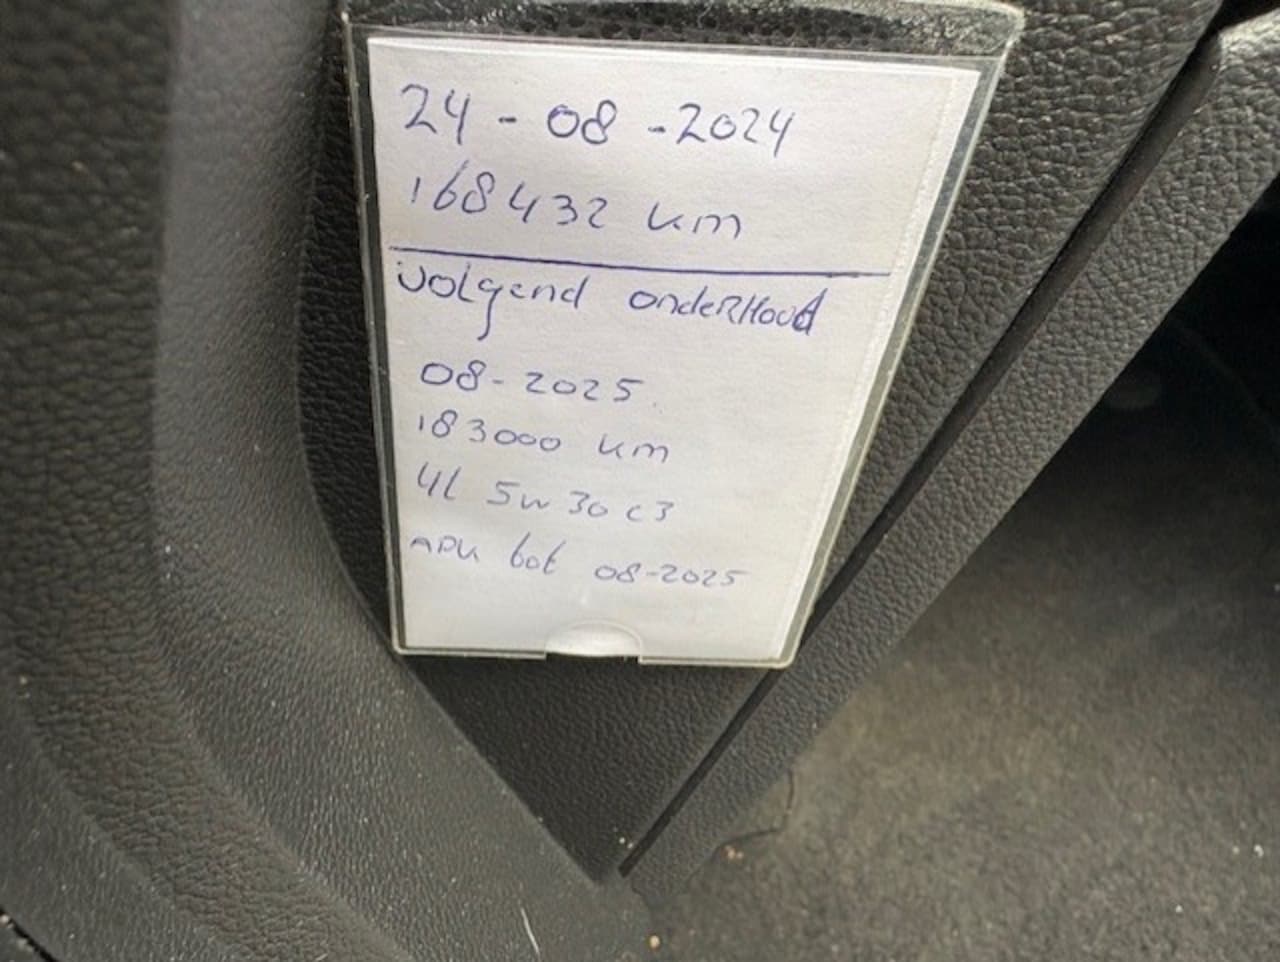 24-08-2024
168432 km
volgend onderHoud
08-2025.
183000 km
4L 5w30 c3
APK tot 08-2025